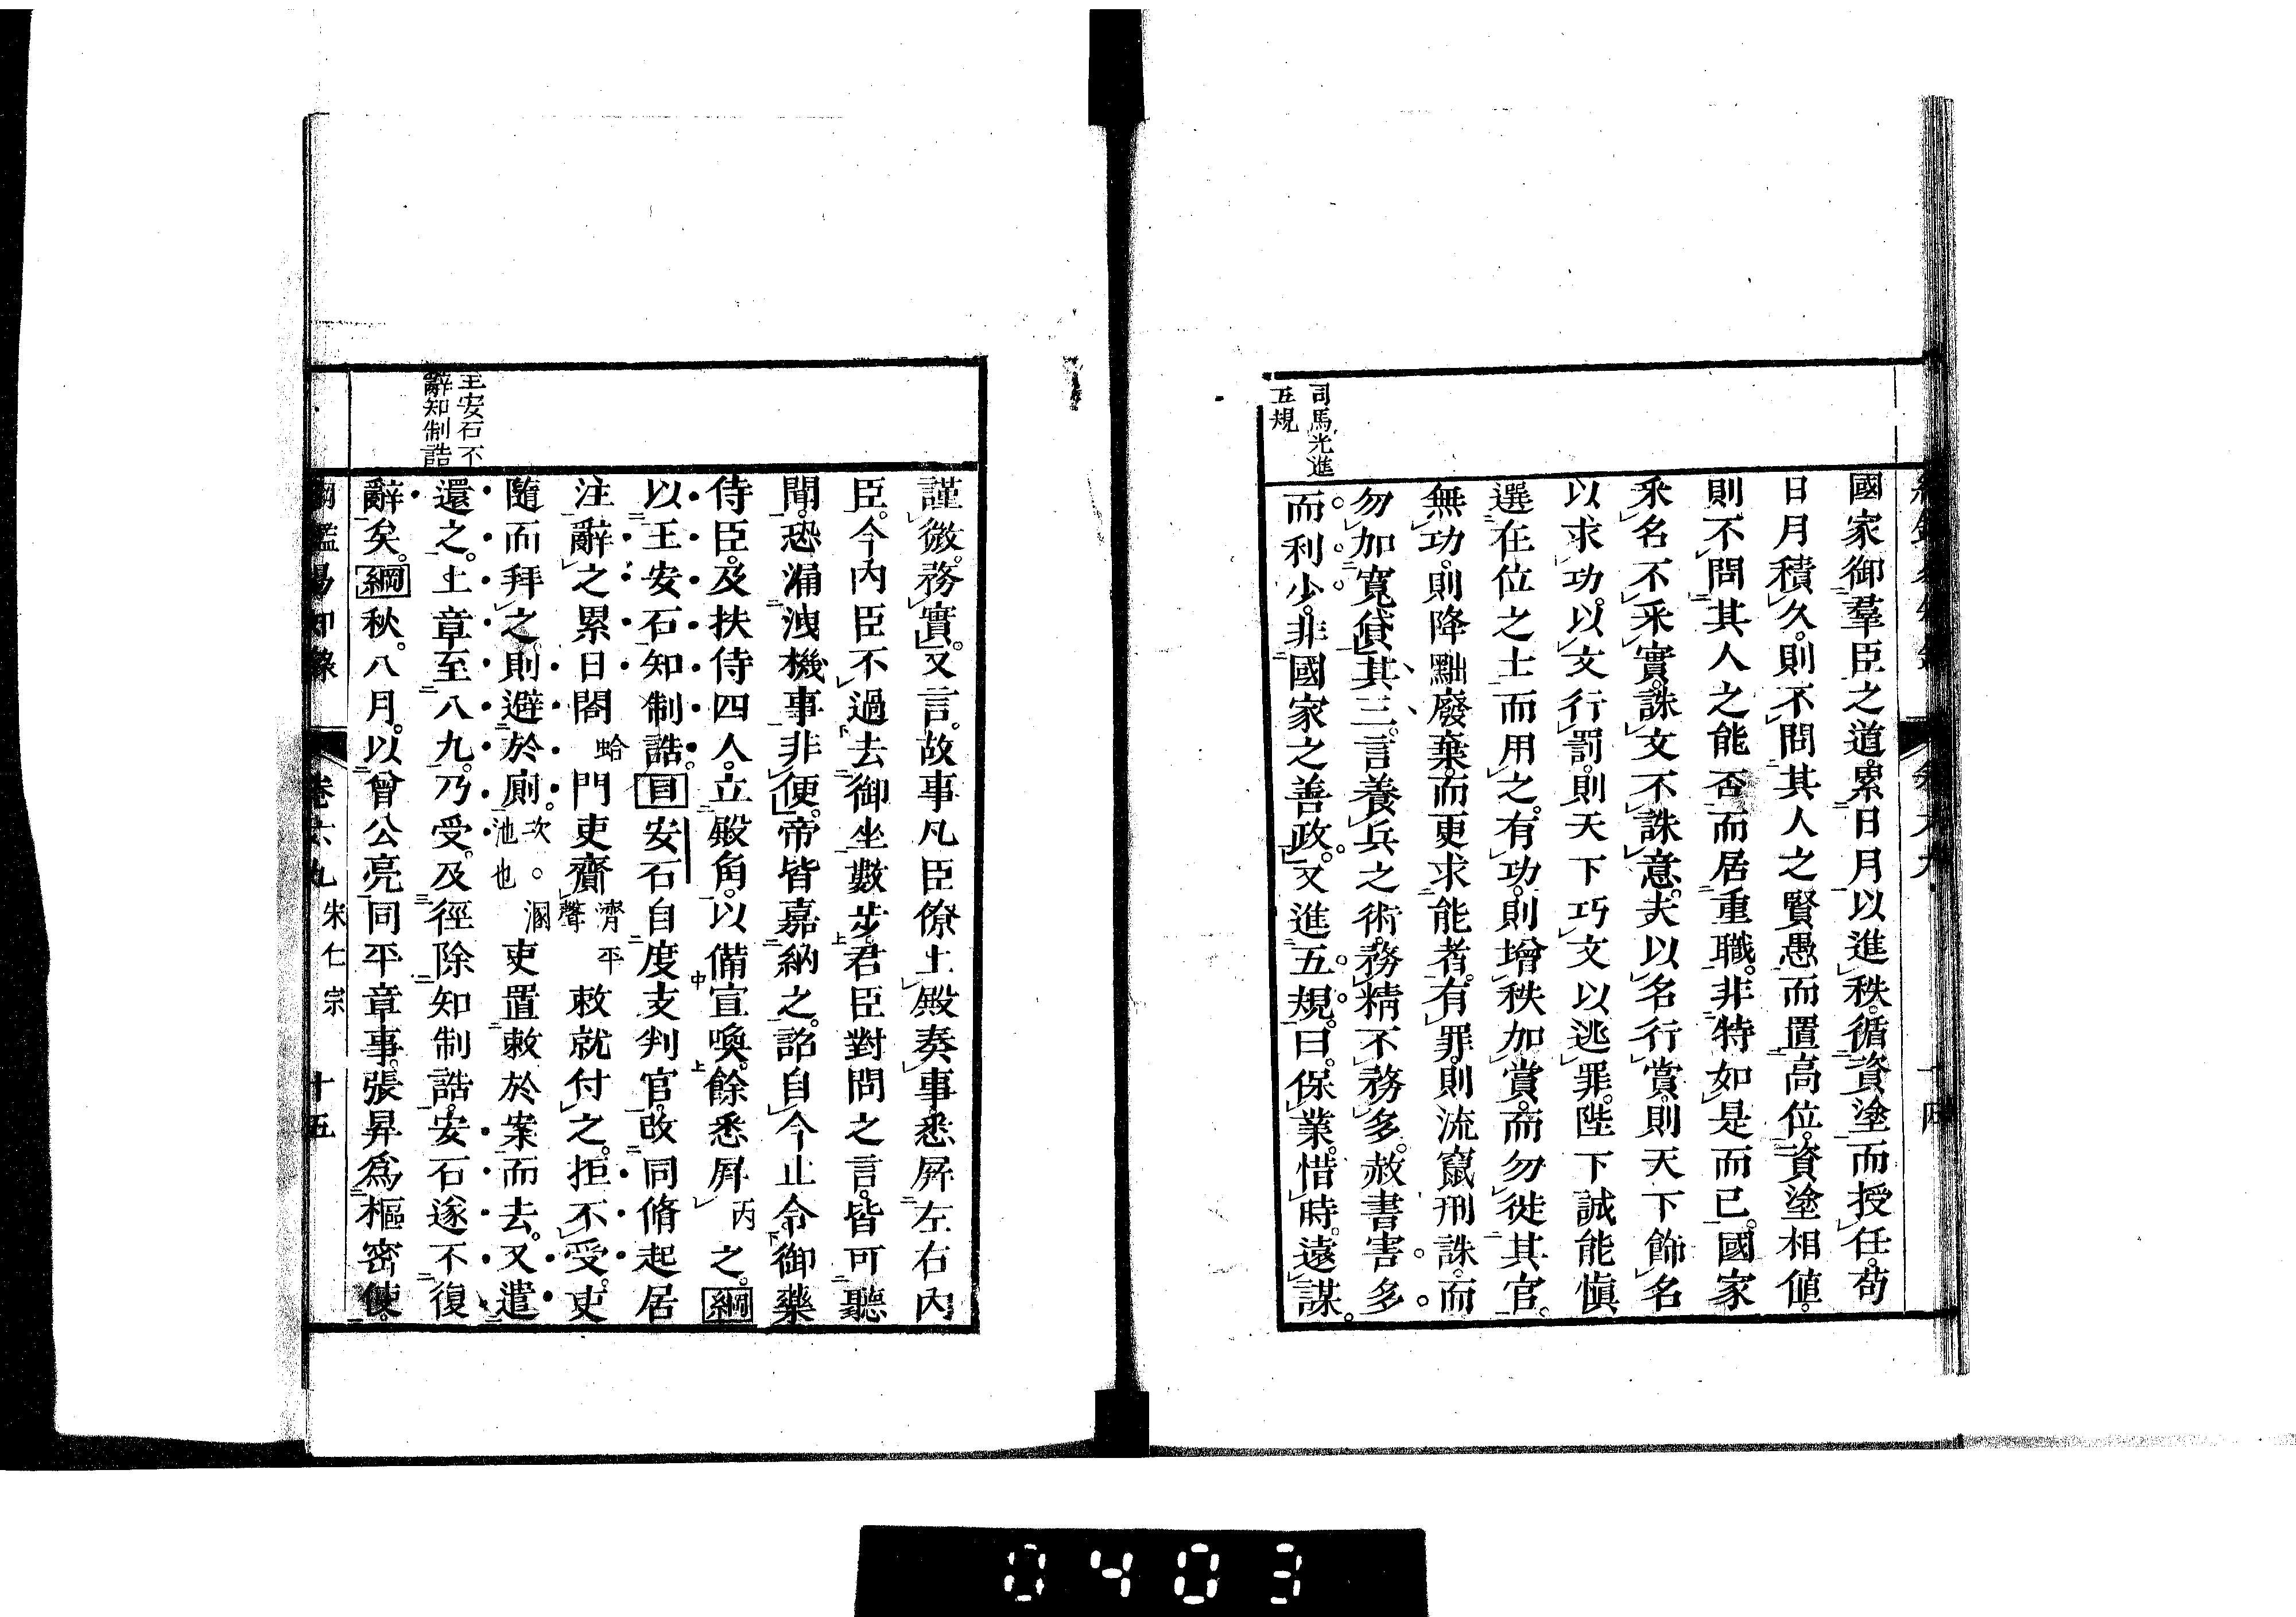 司馬光進
五規
國家御羣臣之道。累日月以進秩。循資塗而授任。苟
日月積久。則不問其人之賢愚而置高位。資塗相値。
則不問其人之能否而居重職。非特如是而已。國家
采名不采實。誅文不誅意。夫以名行賞。則天下飾名
以求功。以文行罰。則天下巧文以逃罪。陛下誠能愼
選在位之士而用之。有功。則增秩加賞。而勿徙其官。
無功。則降黜廢棄。而更求能者。有罪。則流竄刑誅。而
勿加寬貸。其三。言養兵之術。務精不務多。赦書害多
而利少。非國家之善政。又進五規。曰。保業。惜時。遠謀。
王安石不
辭知制誥
謹微。務實。又言。故事凡臣僚上殿奏事。悉屏左右內
臣。今內臣不過去御坐數步。君臣對問之言。皆可聽
聞。恐漏洩機事非便。帝皆嘉納之。詔自今止令御藥
侍臣。及扶侍四人。立殿角。以備宣喚。餘悉屏丙之。綱
以王安石知制誥。目安石自度支判官。改同脩起居
注辭之累日閤蛤門吏齎濟平聲敕就付之。拒不受。吏
隨而拜之。則避於廁。次。溷池也吏置敕於案而去。又遣
還之。上章至八九。乃受。及徑除知制誥。安石遂不復
辭矣。綱秋。八月。以曾公亮同平章事。張昇爲樞密使。
綱鑑易知錄 卷六九 宋仁宗 十五
0403